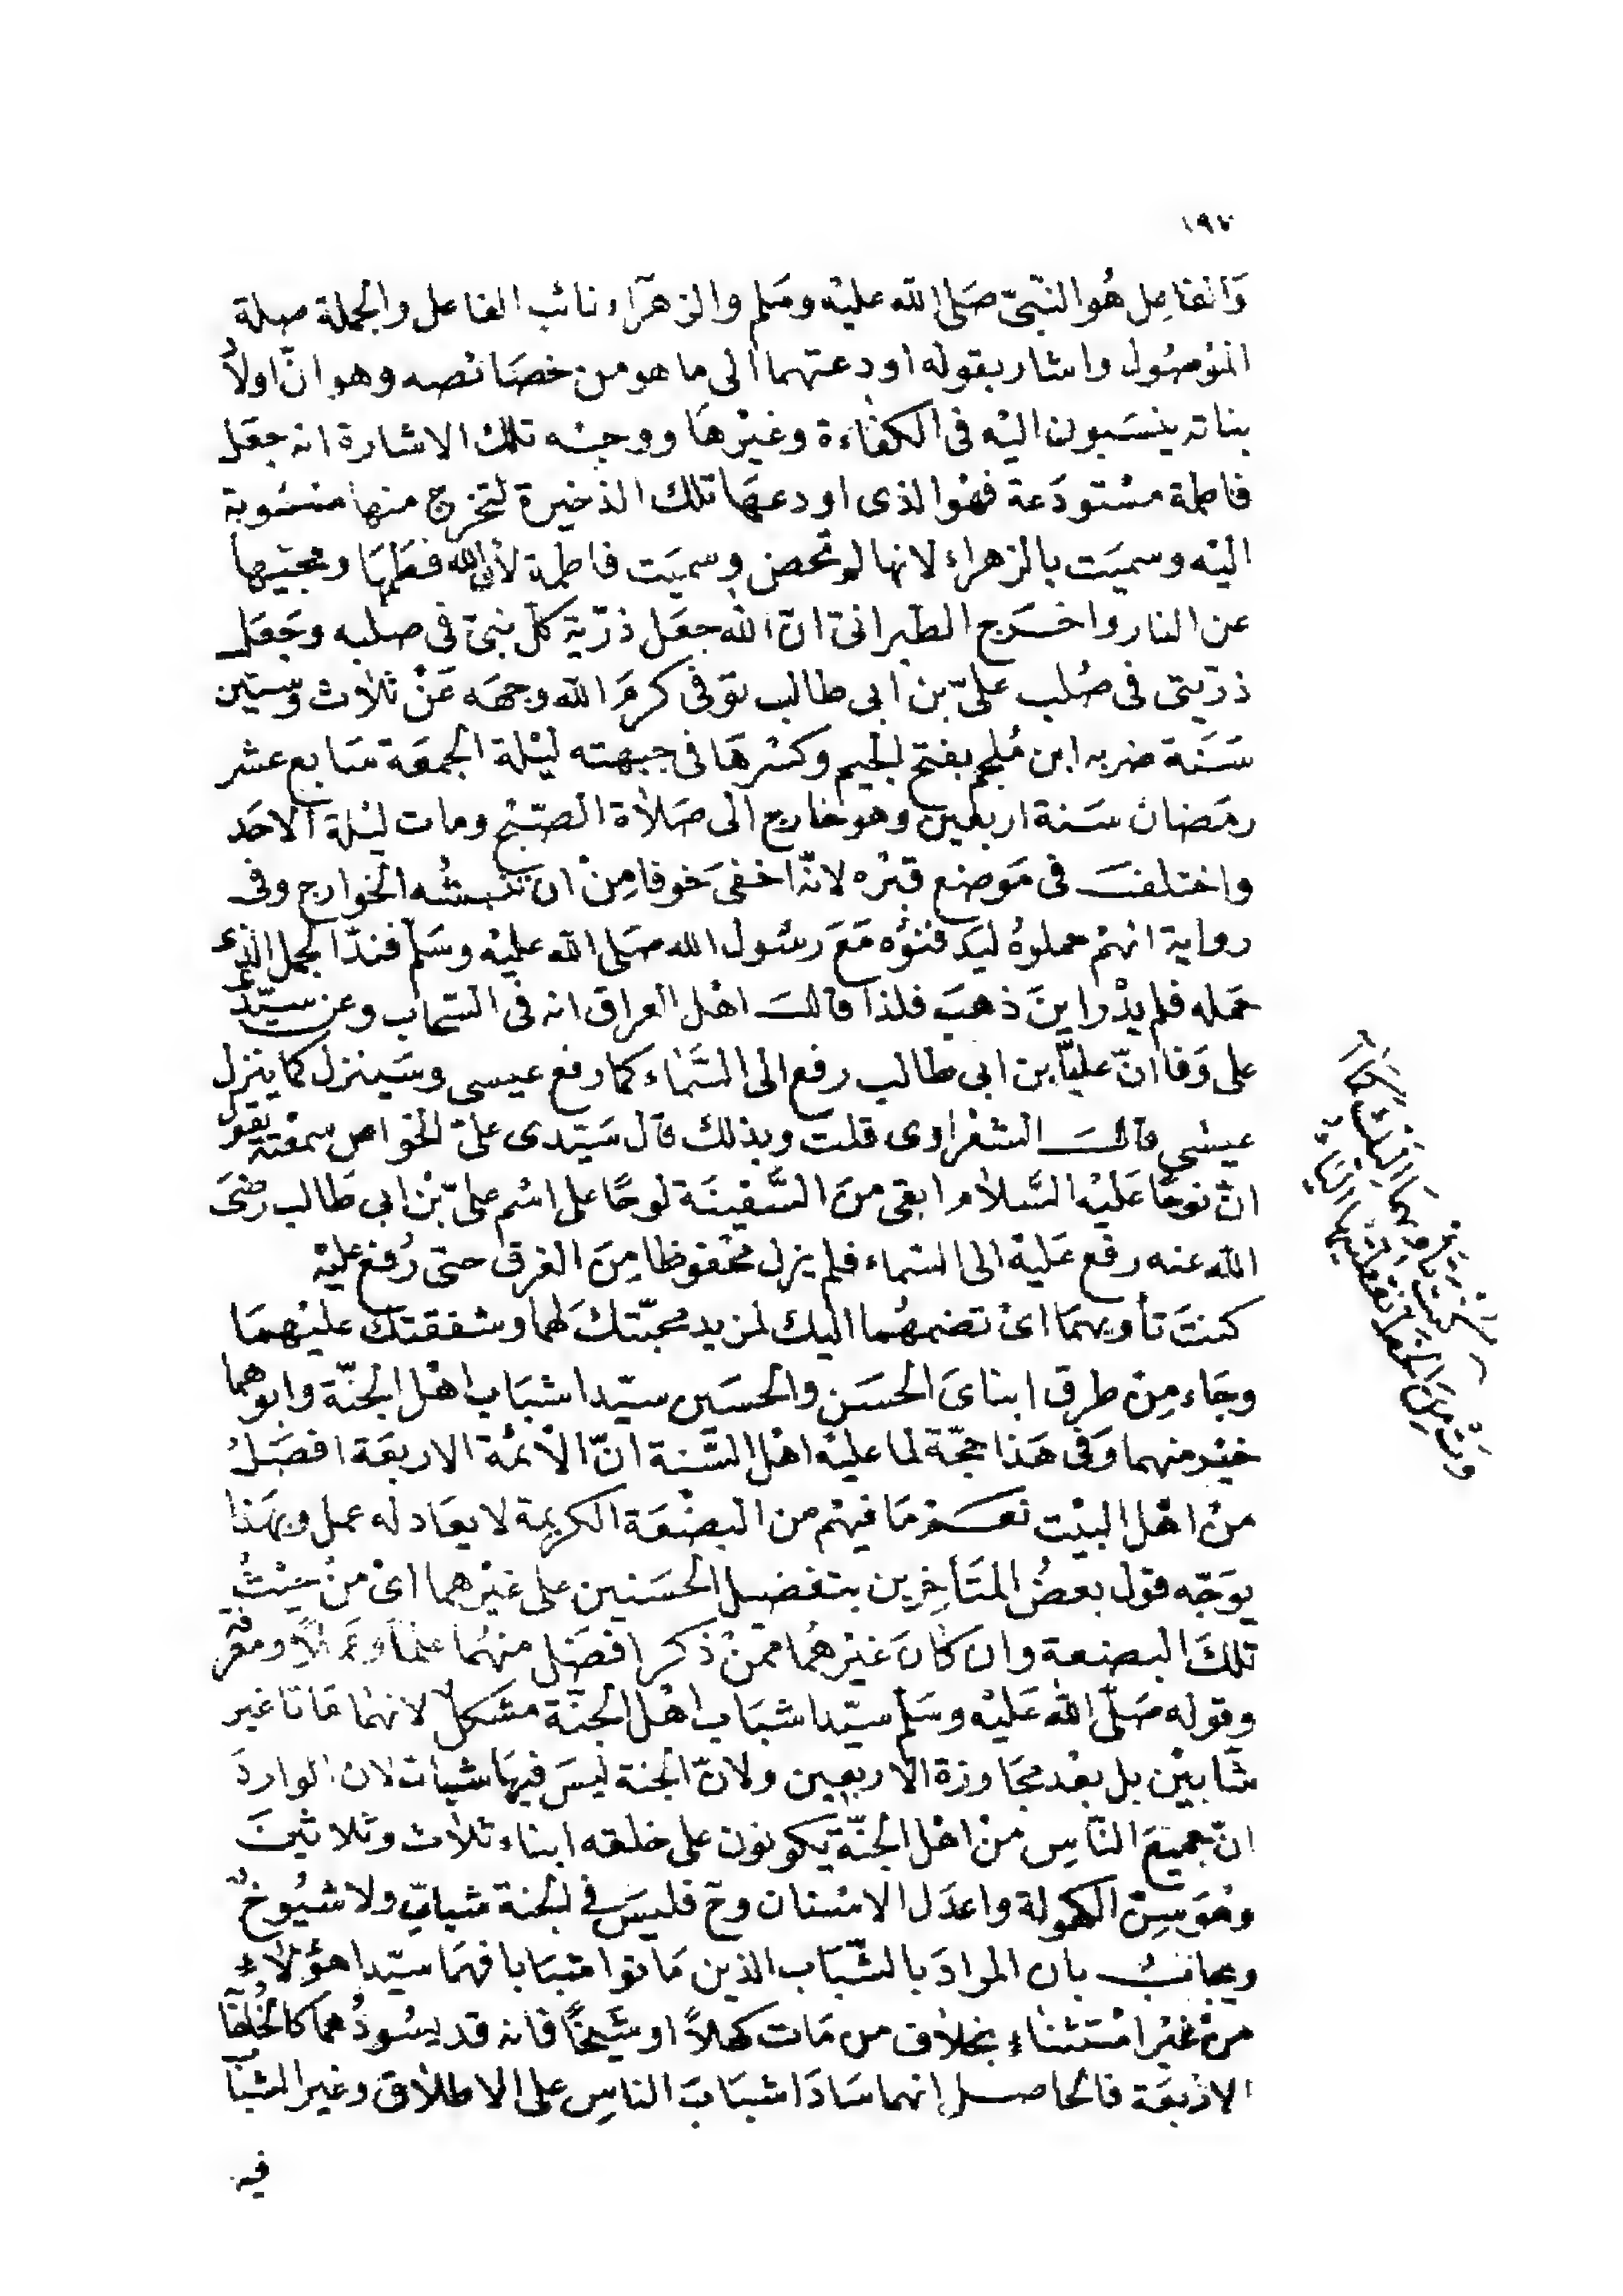 ١٩٧
وَالفاعِل هُو النبّىّ صَلى الله عليْه وسَلم والزهرآء نائب الفاعل والجملة صلة
الموْصُول واشار بقوله اودعتهما الى ما هو من خصَائصه وهو انّ اولاُ
بناته ينسَبون اليْه فى الكفاءة وغيْرهَا ووجْه تلك الاشارة انه جعَل
فاطمة مسْتودَعة فهْو الذى اودعهَا تلك الذخيرة لتخرج منها منسُوبة
اليْه وسميَت بالزهراء لانها لم تحض وسميَت فاطمة لأن الله فطمهَا ومحبّيها
عن النار واخرج الطبرانىّ انّ الله جعَل ذرّية كلّ نبىّ فى صلبه وجَعَل
ذرّيتى فى صُلب علىّ بن ابى طالب توفى كرمَ الله وجهَه عَنْ ثلاث وستين
سَنَة ضربه ابن مُلجم بفتح الجيم وكسْرهَا فى جبهته ليْلة الجمعَة سَابع عشر
رمَضان سَنة اربعين وهو خارج الى صَلاة الصّبْح ومات ليْلة الاحَد
واختلف فى مَوضع قبْره لانّه اخفىَ خوفا مِنْ انَ تنبشُه الخوارج وفى
رواية انهمْ حملوهُ ليَدفنوُه مَعَ رسُول الله صَلى الله عليْه وسَلم فندّ الجمل الذى
حمَله فلم يدْر اينَ ذهبَ فلذا قال اهْل العراق انه فى السّحاب وعن سيّدى
على وَفا انّ عليّا بن ابى طالب رفع الى السَّماء كما رفع عيسى وسَينزل كما ينزل
عيسٰى قال الشعْراوى قلت وبذلك قال سَيّدى علىّ الخواص سمعْته يقول
انّ نوحًا عَليْه السَّلام ابقى منَ السَّفينَة لوحًا على اسْم علىّ بْن ابى طَالب رضىَ
الله عنه رفع عَليْه الى السّماء فلم يزل محْفوظا مِنَ الغرق حتى رُفع عليْه
كنتَ تأويهمَا اىْ تضمهُما اليك لمزيد محبّتكَ لهما وشفقتك عليْهمَا
وجَاء مِنْ طرق ابناىَ الحسَن والحسَين سيّدا شبَاب اهْل الجنّة وابوهما
خيْر منهما وَفى هَذا حجّة لما عليْه اهْل السَّنة انّ الأئمّة الاربعَة افضَلُ
منْ اهْل البيْت نعم مَا فيهْم من البضْعَة الكريمة لا يعَادله عمل وبهَذا
يوَجّه قول بعضُ المتَأخِرين بتفضيل الحسَنين على غيْرهما اىْ منْ حيْثُ
تلكَ البضعة وان كانَ غيْرهُما ممّنْ ذكر افضَل منهُما علمًا وعَملاً ومعْرفة
وقوله صَلّى اللهُ عَليْه وسَلم سيّدا شبَاب اهْل الجنّة مشكلٌ لانهمَا مَاتا غير
شَابيْن بل بعْد مجَاوزة الاربعين ولانّ الجنة ليْسَ فيهَا شباب لان الواردَ
انّ جميَعَ النّاسِ منْ اهْل الجنّة يَكونون على خلقه ابناء ثلاث وثلاثينَ
وهُوَ سِنّ الكهولة واعدَل الاسْنان وح فليسَ فى الجنة شبابٌ ولا شيُوخٌ
ويجابُ بان المرادَ بالشّبَاب الذين مَاتوا شبَابا فهمَا سيّدا هؤلاء
منْ غيْر اسْتثناء بخلاف من مَات كهلاً او شَيْخًا فانه قد يسُودُهما كالخُلفَا
الارْبعَة فالحاصل انهما سَادَا شبَابَ الناسِ على الاطلاق وغير الشبَا
فيه
كنت تأويهما اليك كما آ
وت من الخط نقطتيها الياء